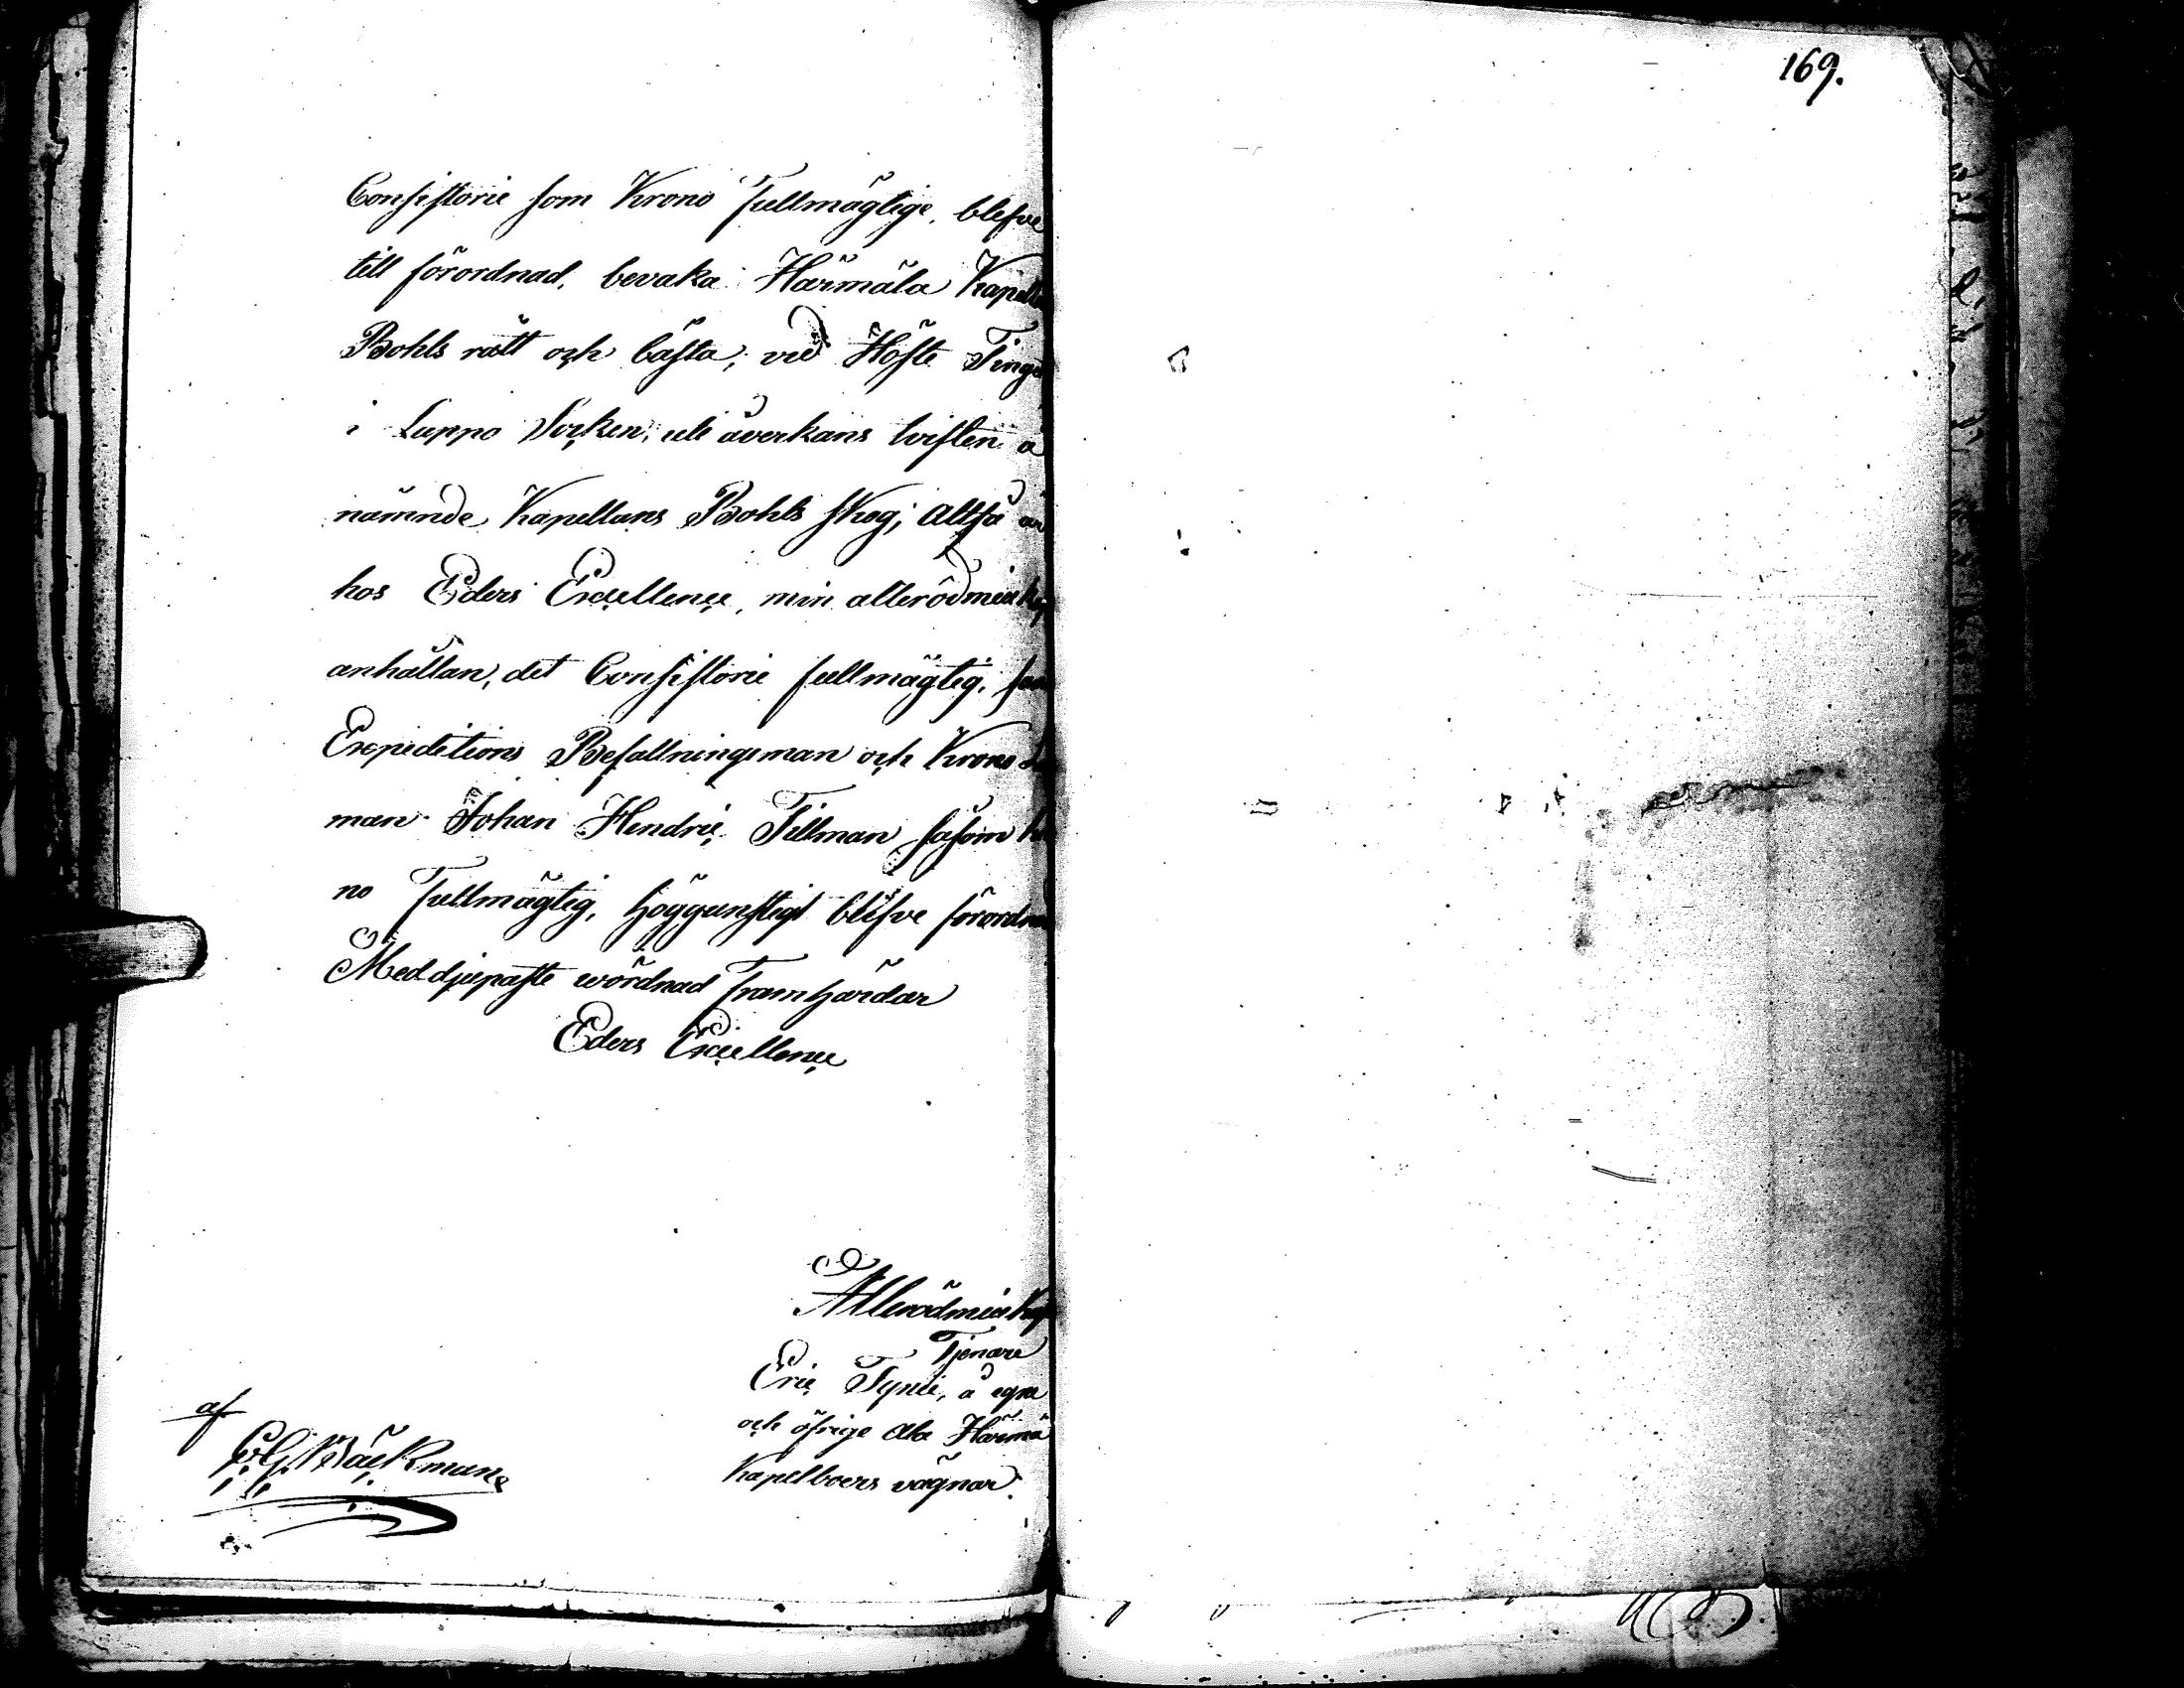 169.
Consistorie som Krono Fullmägtige, blefve
till förordnad, bevaka Härmälä Kapell
Bohls rätt och bästa, vid Höste Tinget
i Lappo Socken, uti åverkans tvisten å
nämnde Kapellans Bohls skog; altså är
hos Eders Excellence, min allerödmiuk
anhållan, det Consistorie fullmägtig,
Expeditions Befallningsman och Krono
man Johan Hendric Tillman såsom
no Fullmägtig, höggunstigt blefve förordnad
Med djupaste wördnad framhärdar
Eders Excellence
Allerödmiuk
Tjenare
Eric Tynie, å egne
och öfrige Ala Härmä
Kapelboers vägnar.
af
C. G. Wäckman